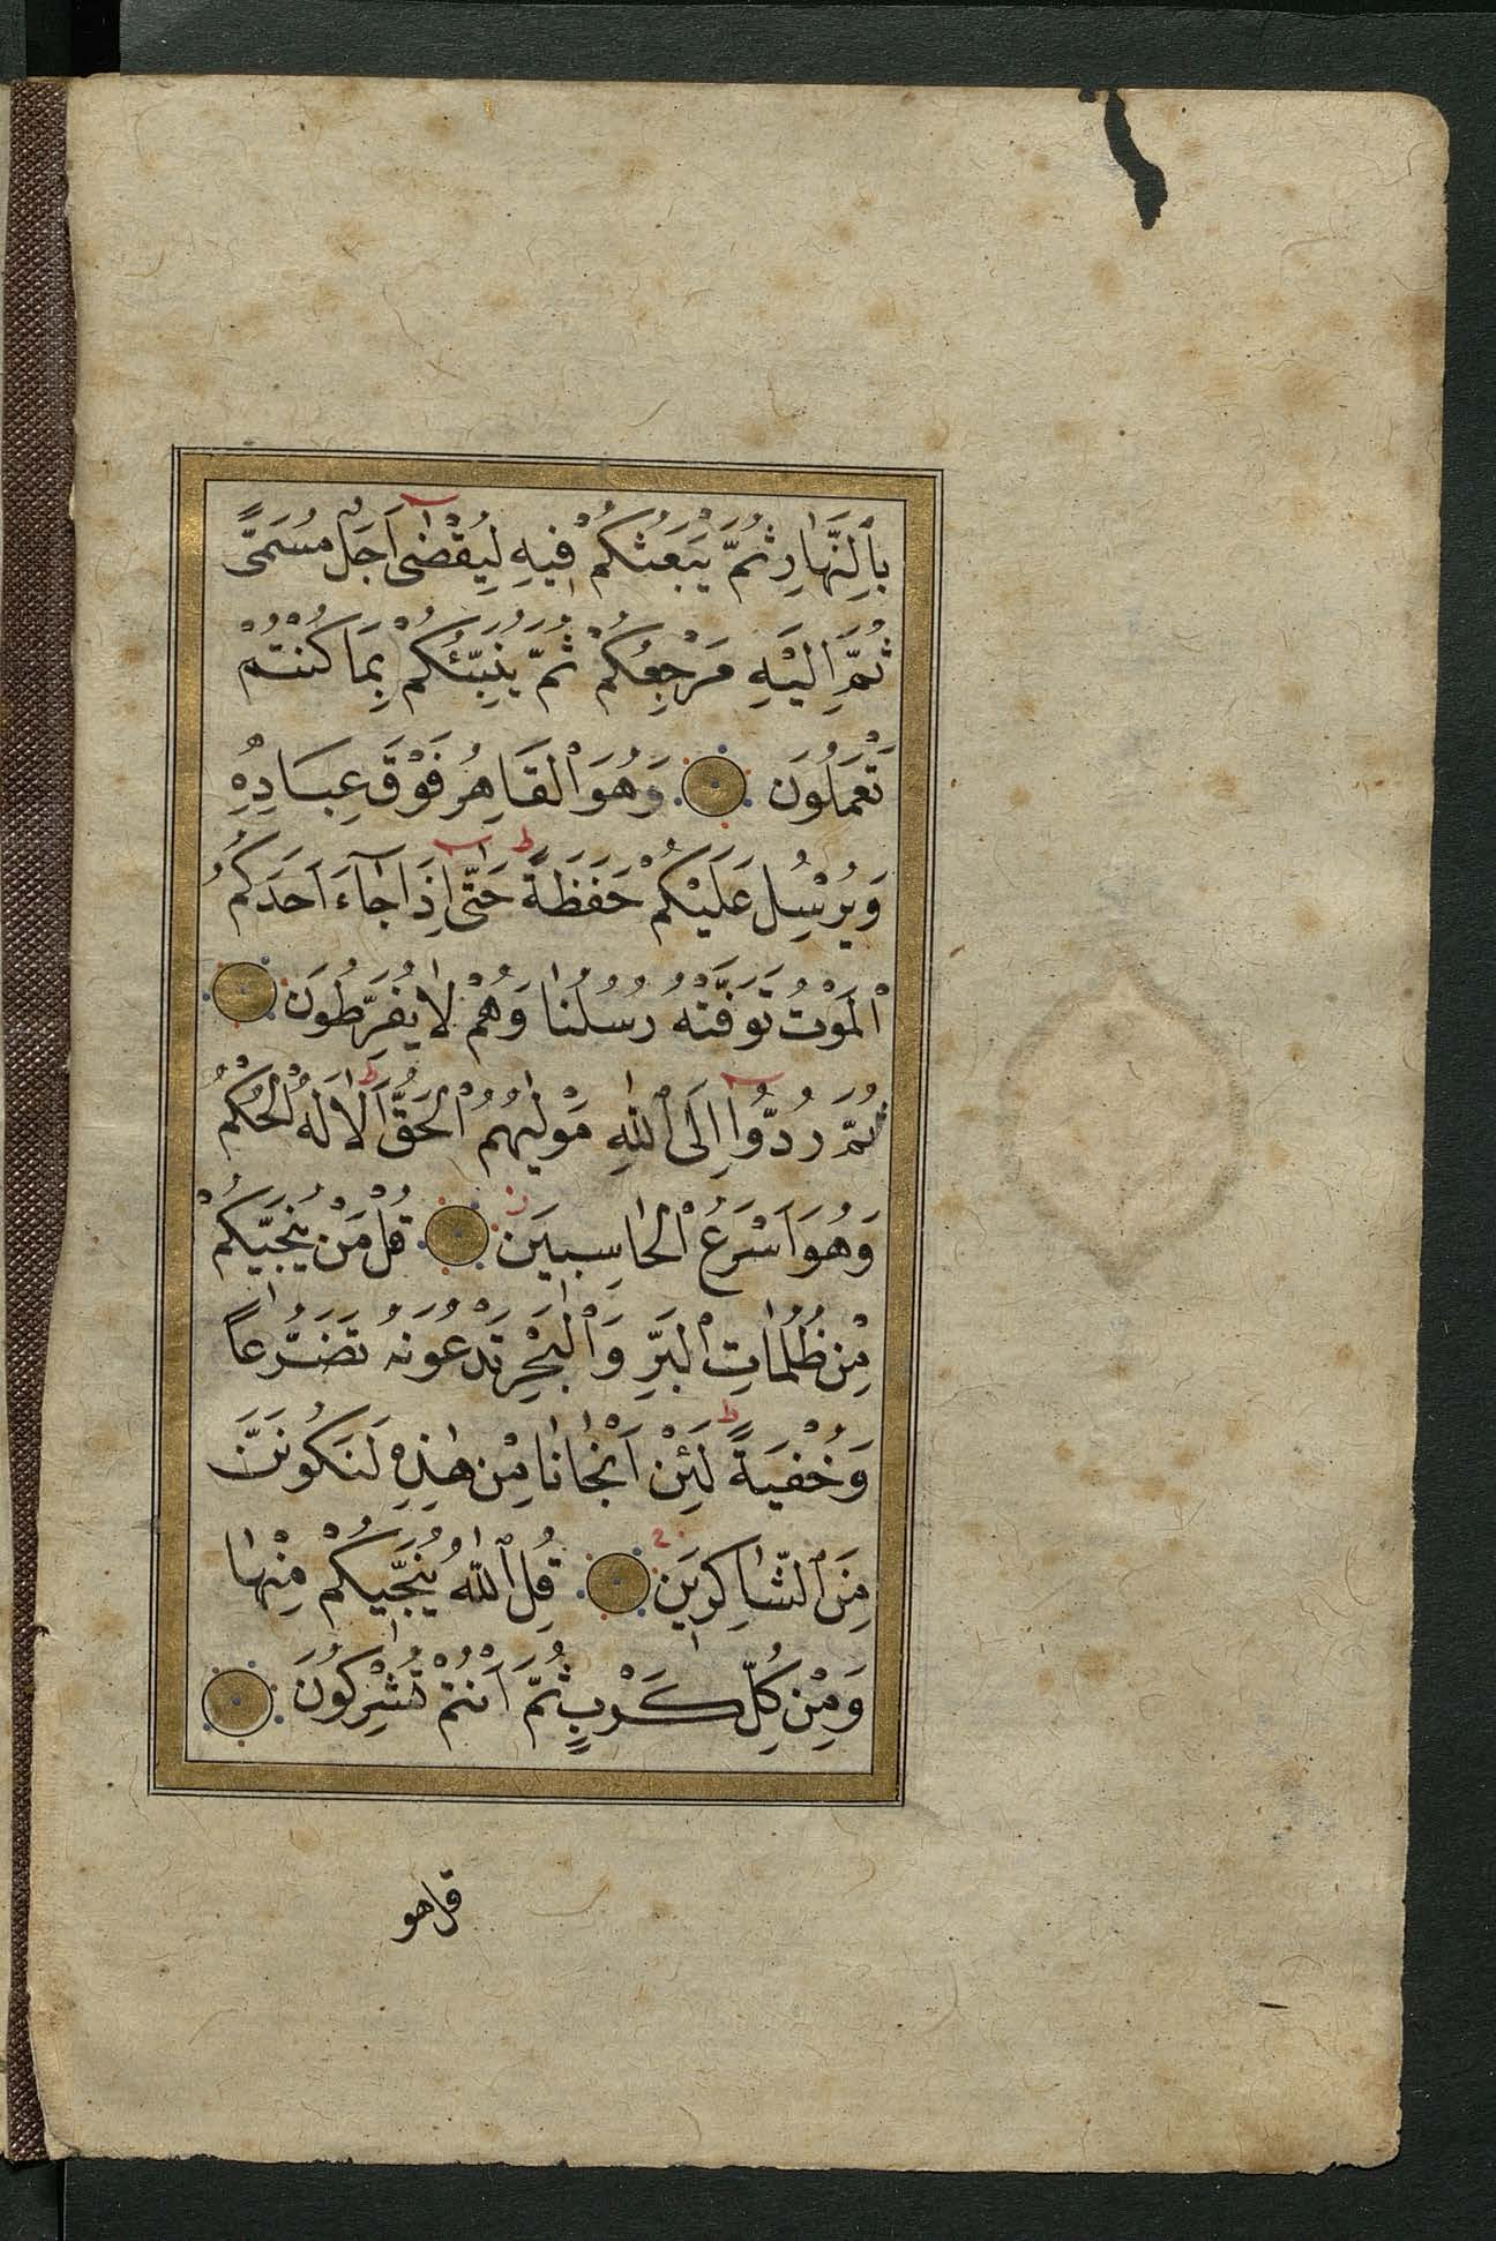 بِالنَّهَارِ ثُمَّ يَبْعَثُكُمْ فِيهِ لِيُقْضٰى اَجَلٌ مُسَمًّى
ثُمَّ اِلَيْهِ مَرْجِعُكُمْ ثُمَّ يُنَبِّئُكُمْ بِمَا كُنْتُمْ
تَعْمَلُونَ وَهُوَ الْقَاهِرُ فَوْقَ عِبَادِهِ
وَيُرْسِلُ عَلَيْكُمْ حَفَظَةً ط حَتّٰى اِذَا جَاءَ اَحَدَكُمُ
الْمَوْتُ تَوَفَّتْهُ رُسُلُنَا وَهُمْ لَا يُفَرِّطُونَ
ثُمَّ رُدُّوا اِلَى اللّٰهِ مَوْلٰيهُمُ الْحَقِّ ط اَلَا لَهُ الْحُكْمُ
وَهُوَ اَسْرَعُ الْحَاسِبِينَ قُلْ مَنْ يُنَجِّيكُمْ
مِنْ ظُلُمَاتِ الْبَرِّ وَالْبَحْرِ تَدْعُونَهُ تَضَرُّعاً
وَخُفْيَةً ط لَئِنْ اَنْجَانَا مِنْ هٰذِهِ لَنَكُونَنَّ
مِنَ الشَّاكِرِينَ قُلِ اللّٰهُ يُنَجِّيكُمْ مِنْهَا
وَمِنْ كُلِّ كَرْبٍ ثُمَّ اَنْتُمْ تُشْرِكُونَ
قل هو